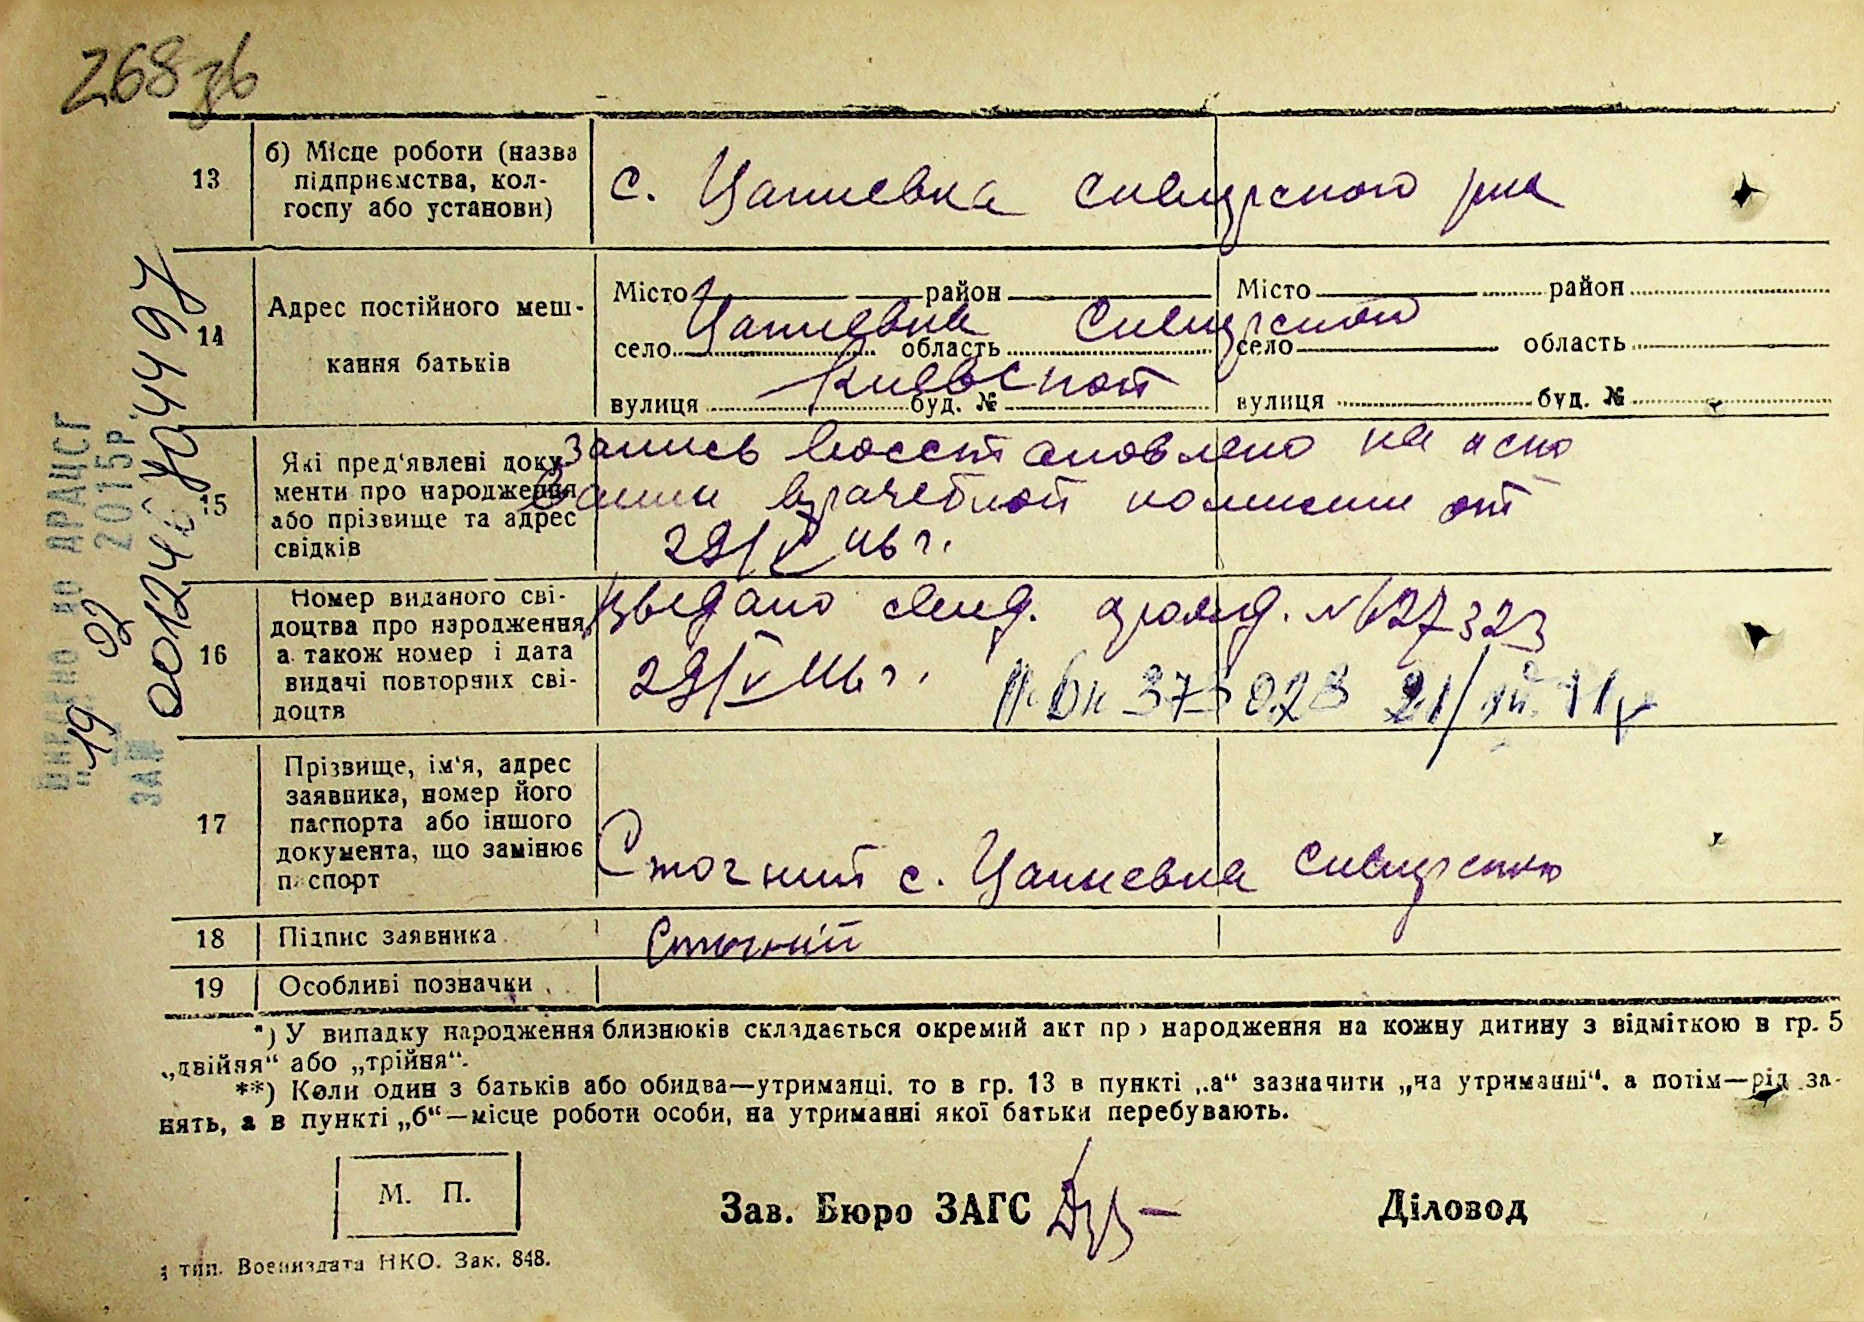 268 зв
13
б) Місце роботи (назва
підприємства, кол-
госпу або установи)
с. Цапиевка Сквирского рна
14
Адрес постійного меш-
кання батьків
Місто район Місто район
Цапиевка Сквирского
село область село область
Киевской
вулиця буд. № вулиця буд. №
15
Які пред'явлені доку-
менти про народження
або прізвище та адрес
свідків
запись восстановлено на осно
вании врачебной комисии от
29/V 46 г.
16
Номер виданого сві-
доцтва про народження,
а також номер і дата
видачі повторних сві-
доцтв
Выдано свид. о рожд. № 627323
29/V 46 г.
373028 21/
17
Прізвище, ім'я, адрес
заявника, номер його
паспорта або іншого
документа, що замінює
паспорт
Сточний с. Цапиевка Сквирского
18
Підпис заявника
Сточний
19
Особливі позначки
*) У випадку народження близнюків складається окремий акт про народження на кожну дитину з відміткою в гр. 5
„двійня“ або „трійня“.
**) Коли один з батьків або обидва—утриманці, то в гр. 13 в пункті „а“ зазначити „на утриманні“, а потім—рід за-
нять, а в пункті „б“—місце роботи особи, на утриманні якої батьки перебувають.
М. П.
Зав. Бюро ЗАГС
Діловод
тип. Воениздата НКО. Зак. 848.
ДРАЦСГ
2015р.
19 02